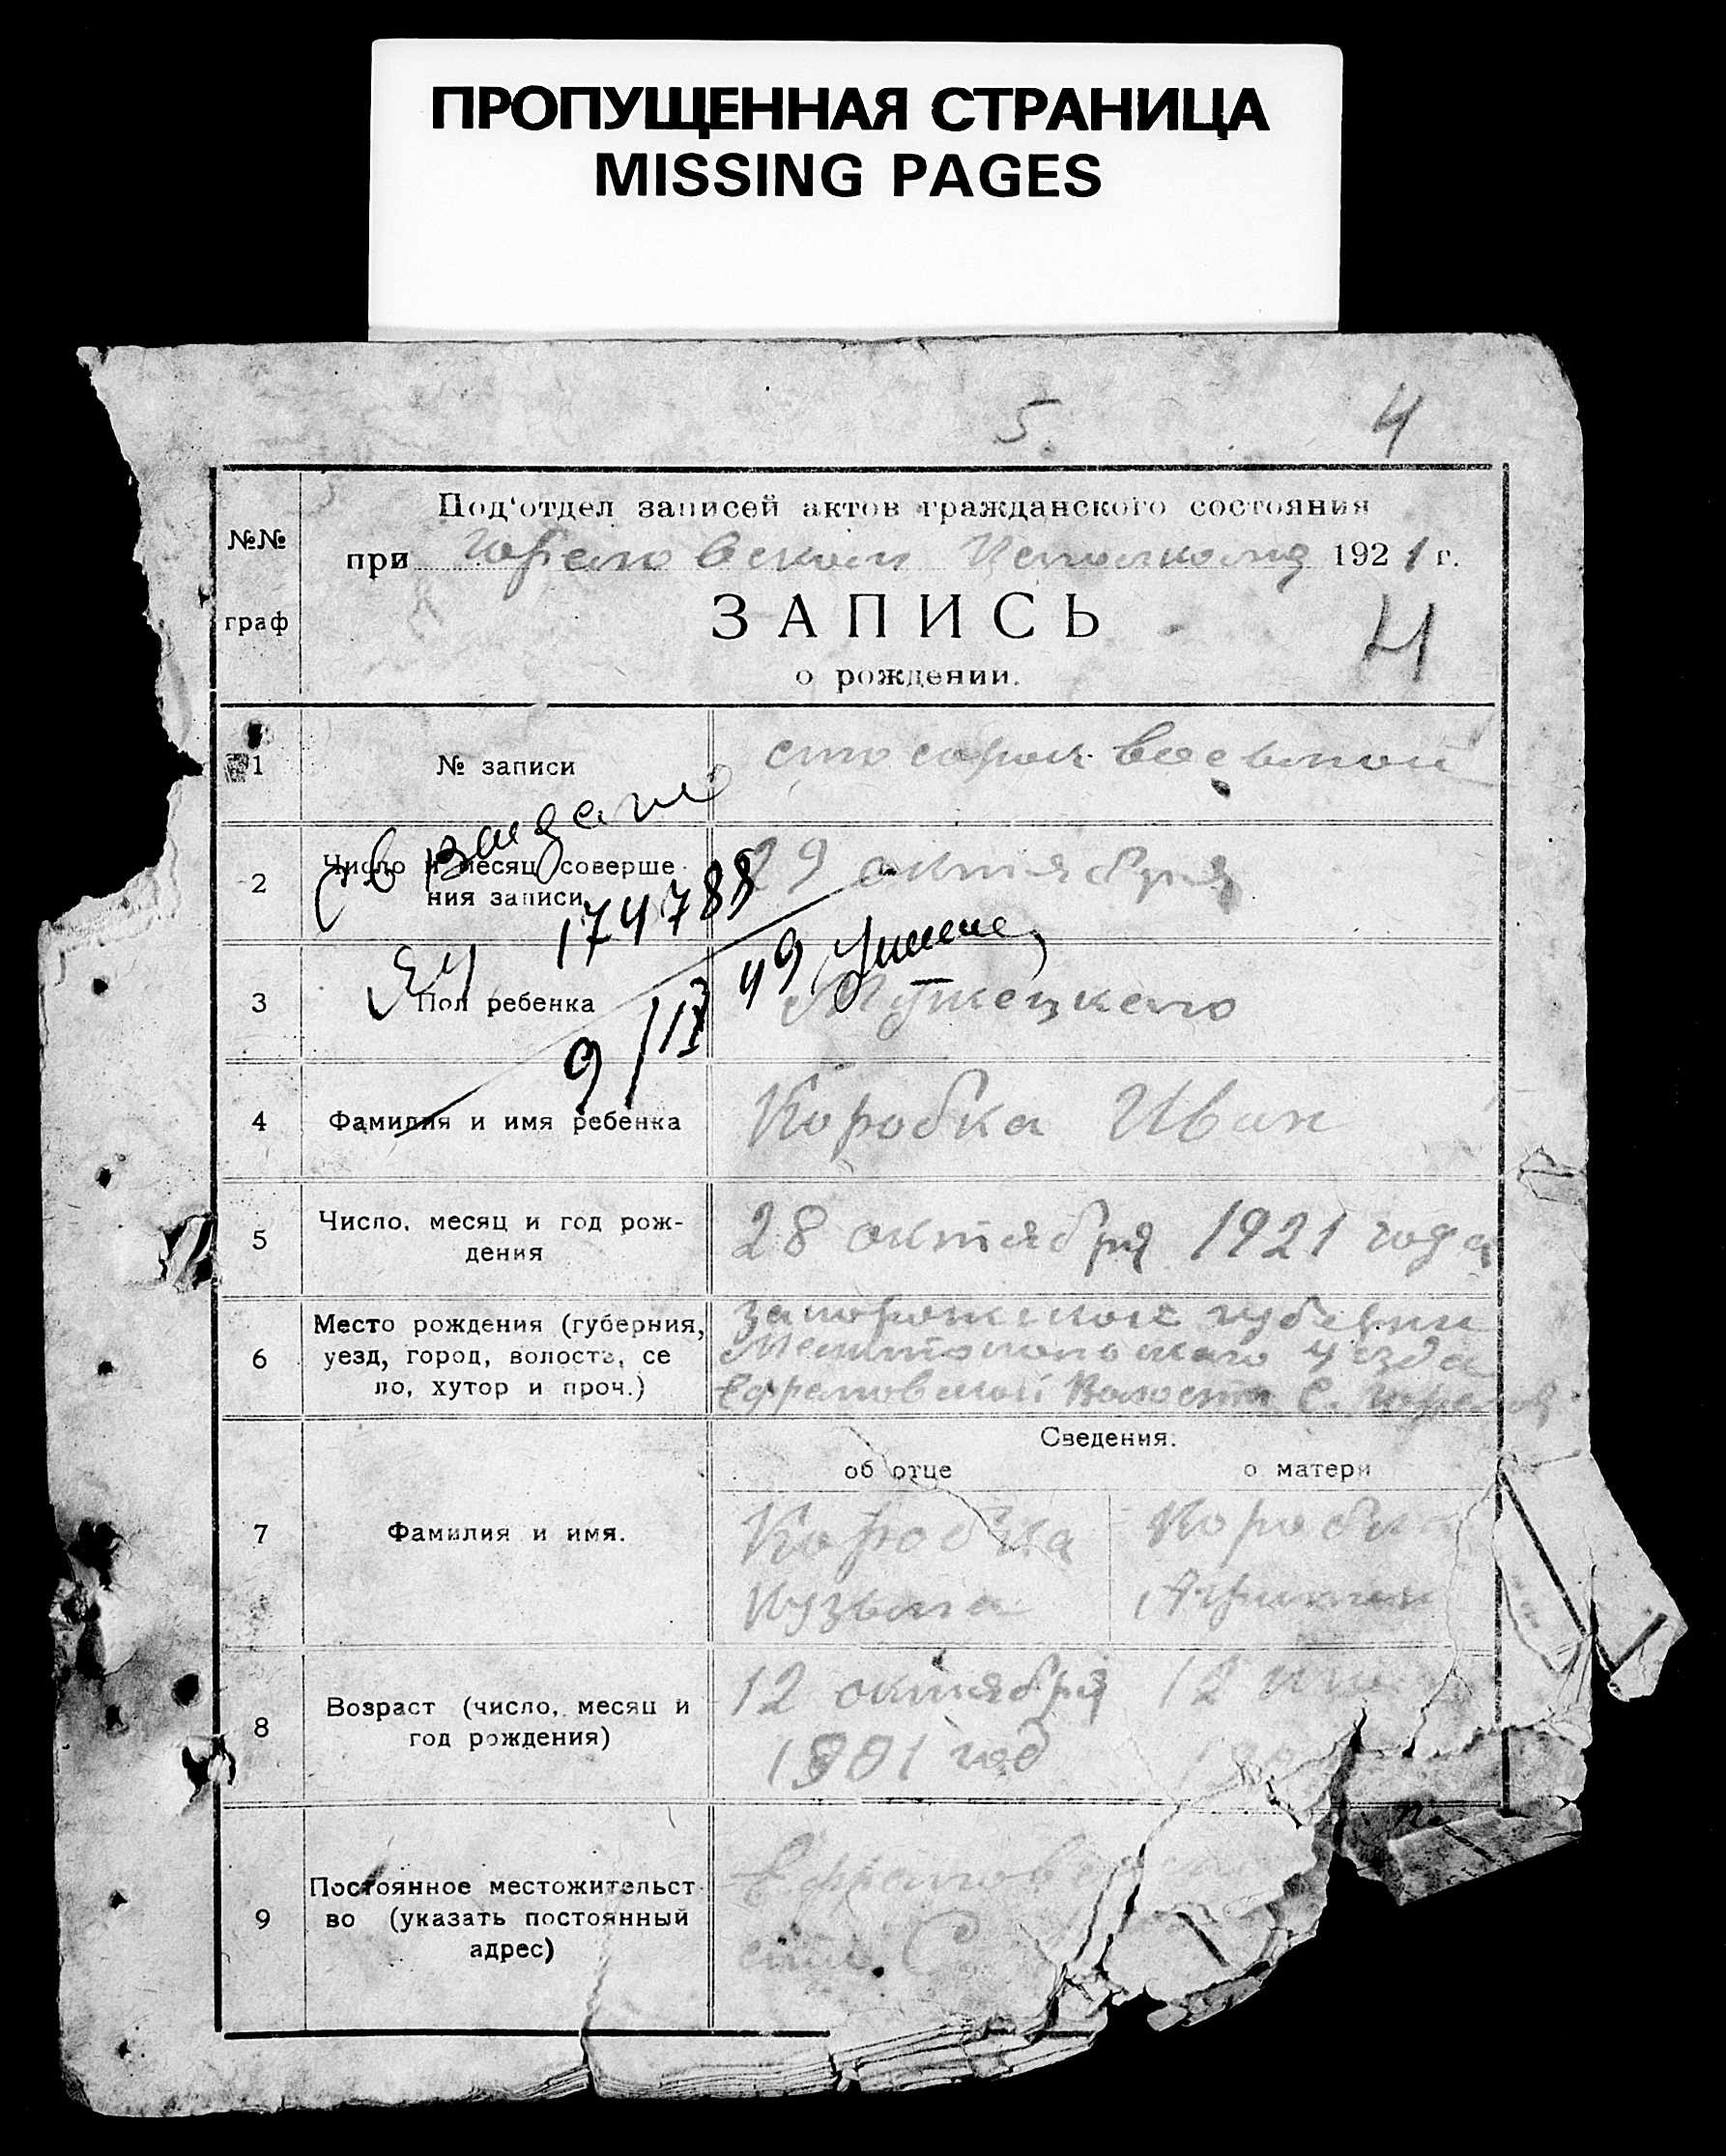 ПРОПУЩЕННАЯ СТРАНИЦА
MISSING PAGES
5.
4
№№
граф
Под'отдел записей актов гражданского состояния
при 1921 г.
ЗАПИСЬ
4
о рождении.
1
№ записи
сто сорок восьмой
2
Число и месяц соверше
ния записи
29 октября
Св выдано
ЯЧ 174788
9/IX 49
3
Пол ребенка
Мужецкаго
4
Фамилия и имя ребенка
Коробка Иван
5
Число, месяц и год рож-
дения
28 октября 1921 года
6
Место рождения (губерния,
уезд, город, волость, се
ло, хутор и проч.)
Запорожской губернии
Мелитопольскаго Уезда
Ефремовской Волости С.
Сведения.
об отце
о матери
7
Фамилия и имя.
Коробка
Кузьма
Коробка
8
Возраст (число, месяц и
год рождения)
12 октября
1901 год
12
9
Постоянное местожительст
во (указать постоянный
адрес)
Ефремов
сти. С.